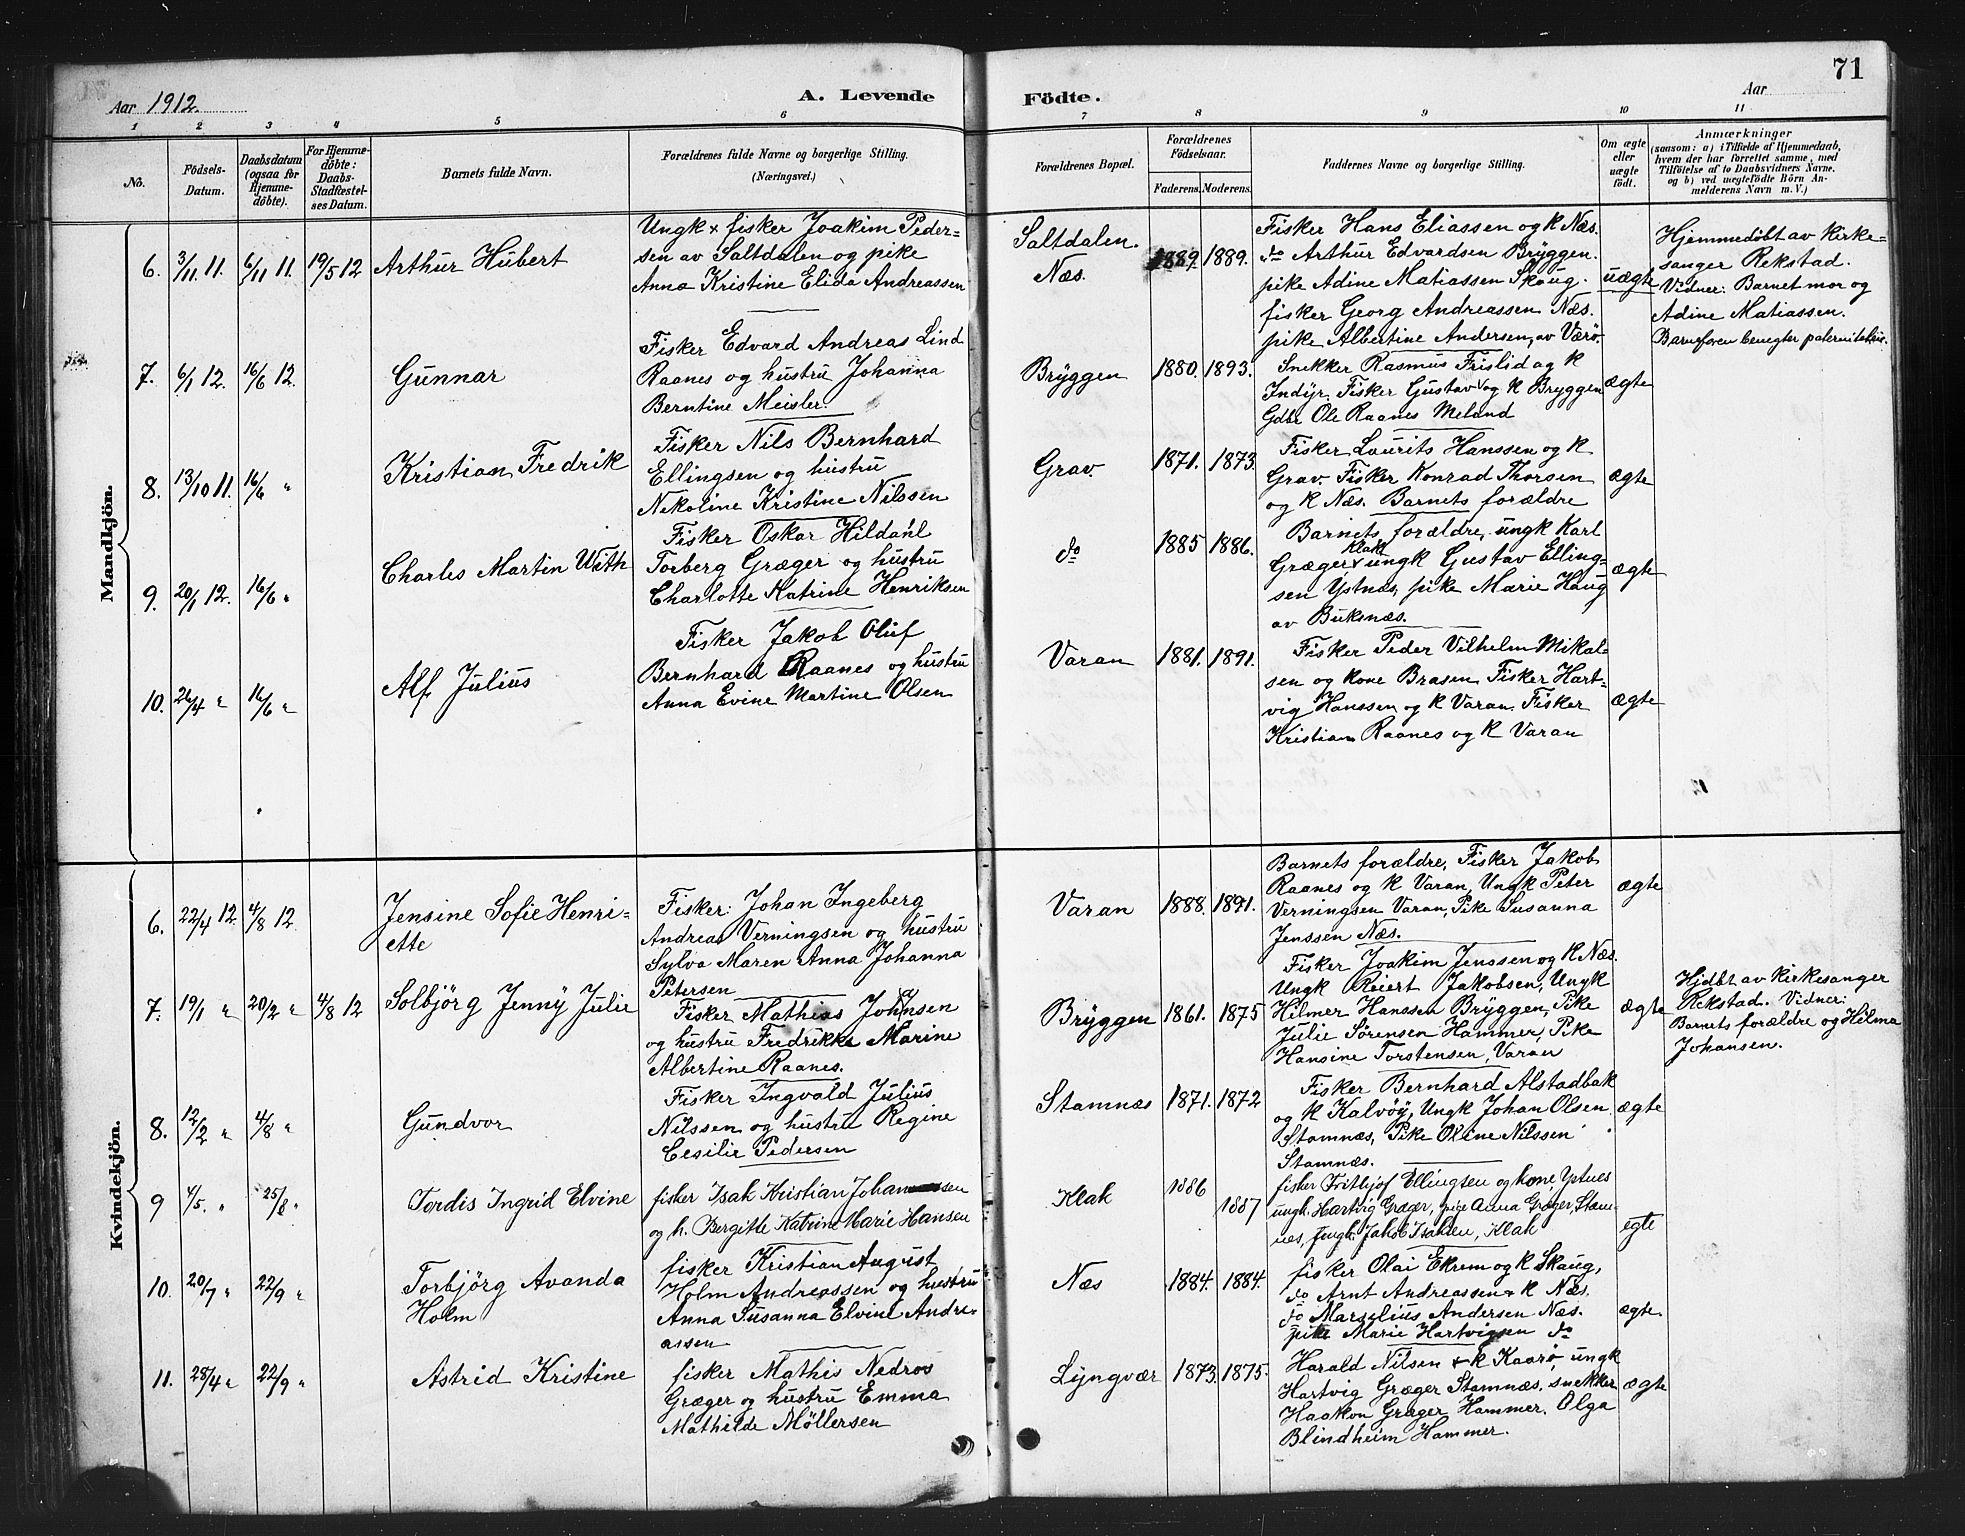 71
Aar 1912. A. Levende Födte. Aar
1 2 3 4 5 6 7 8 9 10 11
No.
Födsels-
Datum.
Daabsdatum
(ogsaa for
Hjemme-
döbte).
For Hjemme-
döbte:
Daabs-
Stadfæstel-
ses Datum.
Barnets fulde Navn.
Forældrenes fulde Navne og borgerlige Stilling.
(Næringsvei.)
Forældrenes Bopæl.
Forældrenes
Födselsaar.
Faderens. Moderens.
Faddernes Navne og borgerlige Stilling.
Om ægte
eller
uægte
födt.
Anmærkninger
(saasom: a) i Tilfælde af Hjemmedaab,
hvem der har forrettet samme, med
Tilföielse af to Daabsvidners Navne,
og b) ved uægtefödte Börn An-
melderens Navn m. V.)
Mandkjön.
6. 3/11 11. 6/11 11. 19/5 12 Arthur Hubert
Ungk & fisker Joakim Peder=
sen av Saltdalen og pike
Anna Kristine Elida Andreassen
Saltdalen.
Næs.
1889. 1889.
Fisker Hans Eliassen og k Næs.
do Arthur Edvardsen Brÿggen.
pike Adine Matiassen Skaug.
fisker Georg Andreassen Næs.
pike Albertine Andersen, av Værö.
uægte
Hjemmedöbt av kirke=
sanger Rekstad.
Vidner: Barnet mor og
Adine Matiassen.
Barnefaren benegter paterniteten.
7. 6/1 12. 16/6 12. Gunnar
Fisker Edvard Andreas Lind
Raanes og hustru Johanna
Berntine Meisler.
Brÿggen 1880. 1893.
Snekker Rasmus Frislid og k
Indÿr. Fisker Gustav og k Bryggen
Gdbr Ole Raanes Meland
ægte
8. 13/10 11. 16/6 " Kristian Fredrik
Fisker Nils Bernhard
Ellingsen og hustru
Nekoline Kristine Nilssen
Grav. 1871. 1873.
Fisker Laurits Hanssen og k
Grav. Fisker Konrad Thorsen
og k Næs. Barnets forældre
ægte
9. 20/1 12. 16/6 " Charles Martin With
Fisker Oskar Hildahl
Torberg Græger og hustru
Charlotte Katrine Henriksen
do 1885 1886.
Barnets forældre, ungk Karl
Græger Klakk & ungk Gustav Elling=
sen Ystnæs, pike Marie Haug
av Buksnæs.
ægte
10. 26/4 " 16/6 " Alf Julius
Fisker Jakob Oluf
Bernhard Raanes og hustru
Anna Evine Martine Olsen
Varan 1881. 1891.
Fisker Peder Vilhelm Mikal=
sen og kone Brasen. Fisker Hart=
vig Hanssen og k Varan. Fisker
Kristian Raanes og k Varan
ægte
Kvindekjön.
6. 22/4 12. 4/8 12. Jensine Sofie Henri=
ette
Fisker: Johan Ingeberg
Andreas Verningsen og hustru
Sylva Maren Anna Johanna
Petersen
Varan 1888. 1891.
Barnets forældre, Fisker Jakob
Raanes og k Varan, Ungk Peter
Verningsen Varan, Pike Susanna
Jenssen Næs.
ægte
7. 19/1 " 20/2 " 4/8 12 Solbjörg Jennÿ Julie
Fisker Mathias Johansen
og hustru Fredrikke Marine
Albertine Raanes.
Brÿggen 1861. 1875
Fisker Joakim Jenssen og k Næs.
Ungk Reiert Jakobsen, Ungk
Hilmer Hanssen Brÿggen, Pike
Julie Sørensen Hammer, Pike
Hansine Torstensen, Varan
ægte
Hjdbt av kirkesanger
Rekstad. Vidner:
Barnets forældre og Hilma
Johansen.
8. 12/2 " 4/8 " Gundvor
Fisker Ingvald Julius
Nilssen og hustru Regine
Cesilie Pedersen
Stamnæs 1871. 1872
Fisker Bernhard Alstadbak
og k Kalvöÿ, Ungk Johan Olsen
Stamnæs, Pike Oline Nilssen
Stamnæs.
ægte
9 4/5. " 25/8 " Tordis Ingrid Elvine
fisker Isak Kristian Johansen
og h. Bergitte Katrine Marie Hansen
Klak 1886 1887
fisker Frithjof Ellingsen og kone, Yptnes
ungk. Hartvig Græger, pige Anna Græger, Stam-
nes, Jakob Isaksen, Klak
egte
10. 20/7 " 22/9 " Torbjörg Avanda
Holm
fisker Kristian August
Holm Andreassen og hustru
Anna Susanna Elvine Andre=
assen
Næs 1884. 1884
fisker Olai Ekrem og k Skaug,
do Arnt Andreassen & k Næs.
do Marselius Andersen Næs.
pike Marie Hartvigsen do
ægte.
11. 28/4 " 22/9 " Astrid Kristine
fisker Mathis Nedros
Græger og hustru Emma
Mathilde Möllersen
Lyngvær 1873. 1875.
Harald Nilsen & k Kaarö, ungk
Hartvig Græger Stamnæs, snekker
Haakon Græger Hammer. Olga
Blindheim Hammer.
ægte